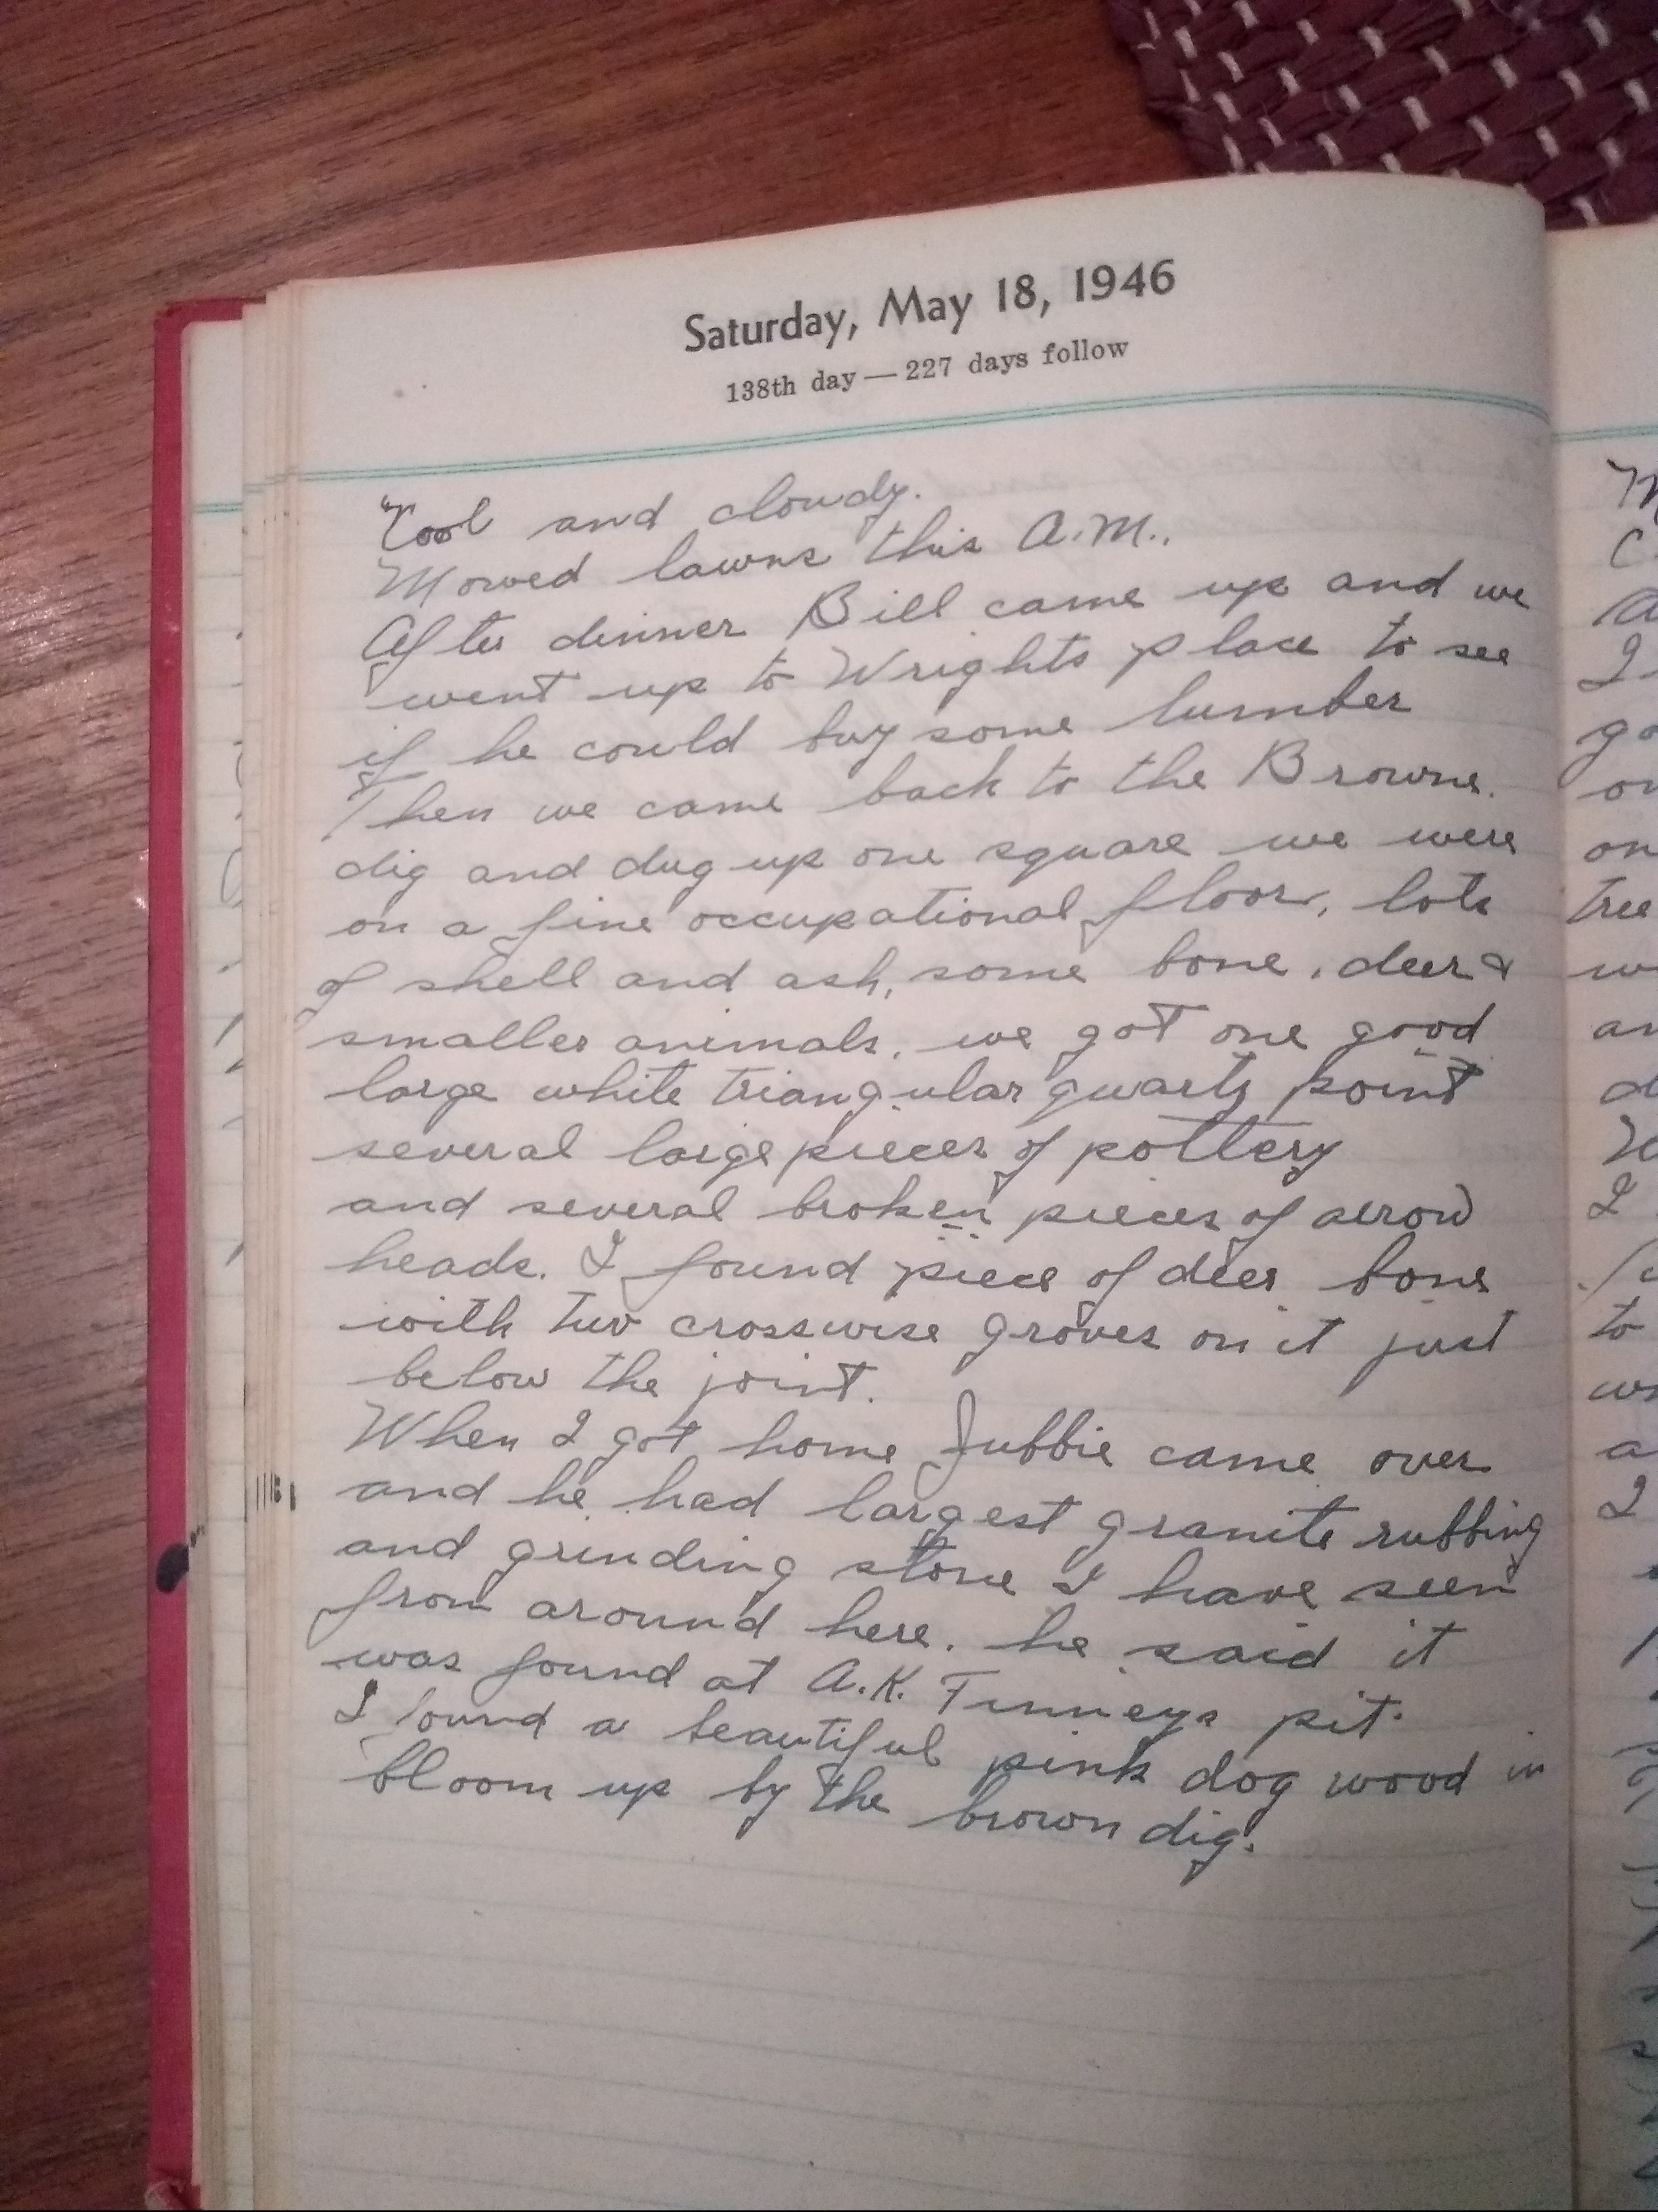 Saturday, May 18, 1946
138th day — 227 days follow
Cool and cloudy.
Mowed lawns this A.M..
After dinner Bill came up and we
went up to Wrights place to see
if he could buy some lumber
Then we came back to the Browns.
dig and dug up one square we were
on a fine occupational floor, lots
of shell and ash, some bone, deer &
smaller animals, we got one good
large white triangular quarts point
several large pieces of pottery
and several broken pieces of arrow
heads. I found piece of deer bone
with two crosswise groves on it just
below the joint.
When I got home Jubbie came over
and he had largest granite rubbing
and grinding stone I have seen
from around here. he said it
was found at A.K. Finneys pit.
I found a beautiful pink dog wood in
bloom up by the brown dig.